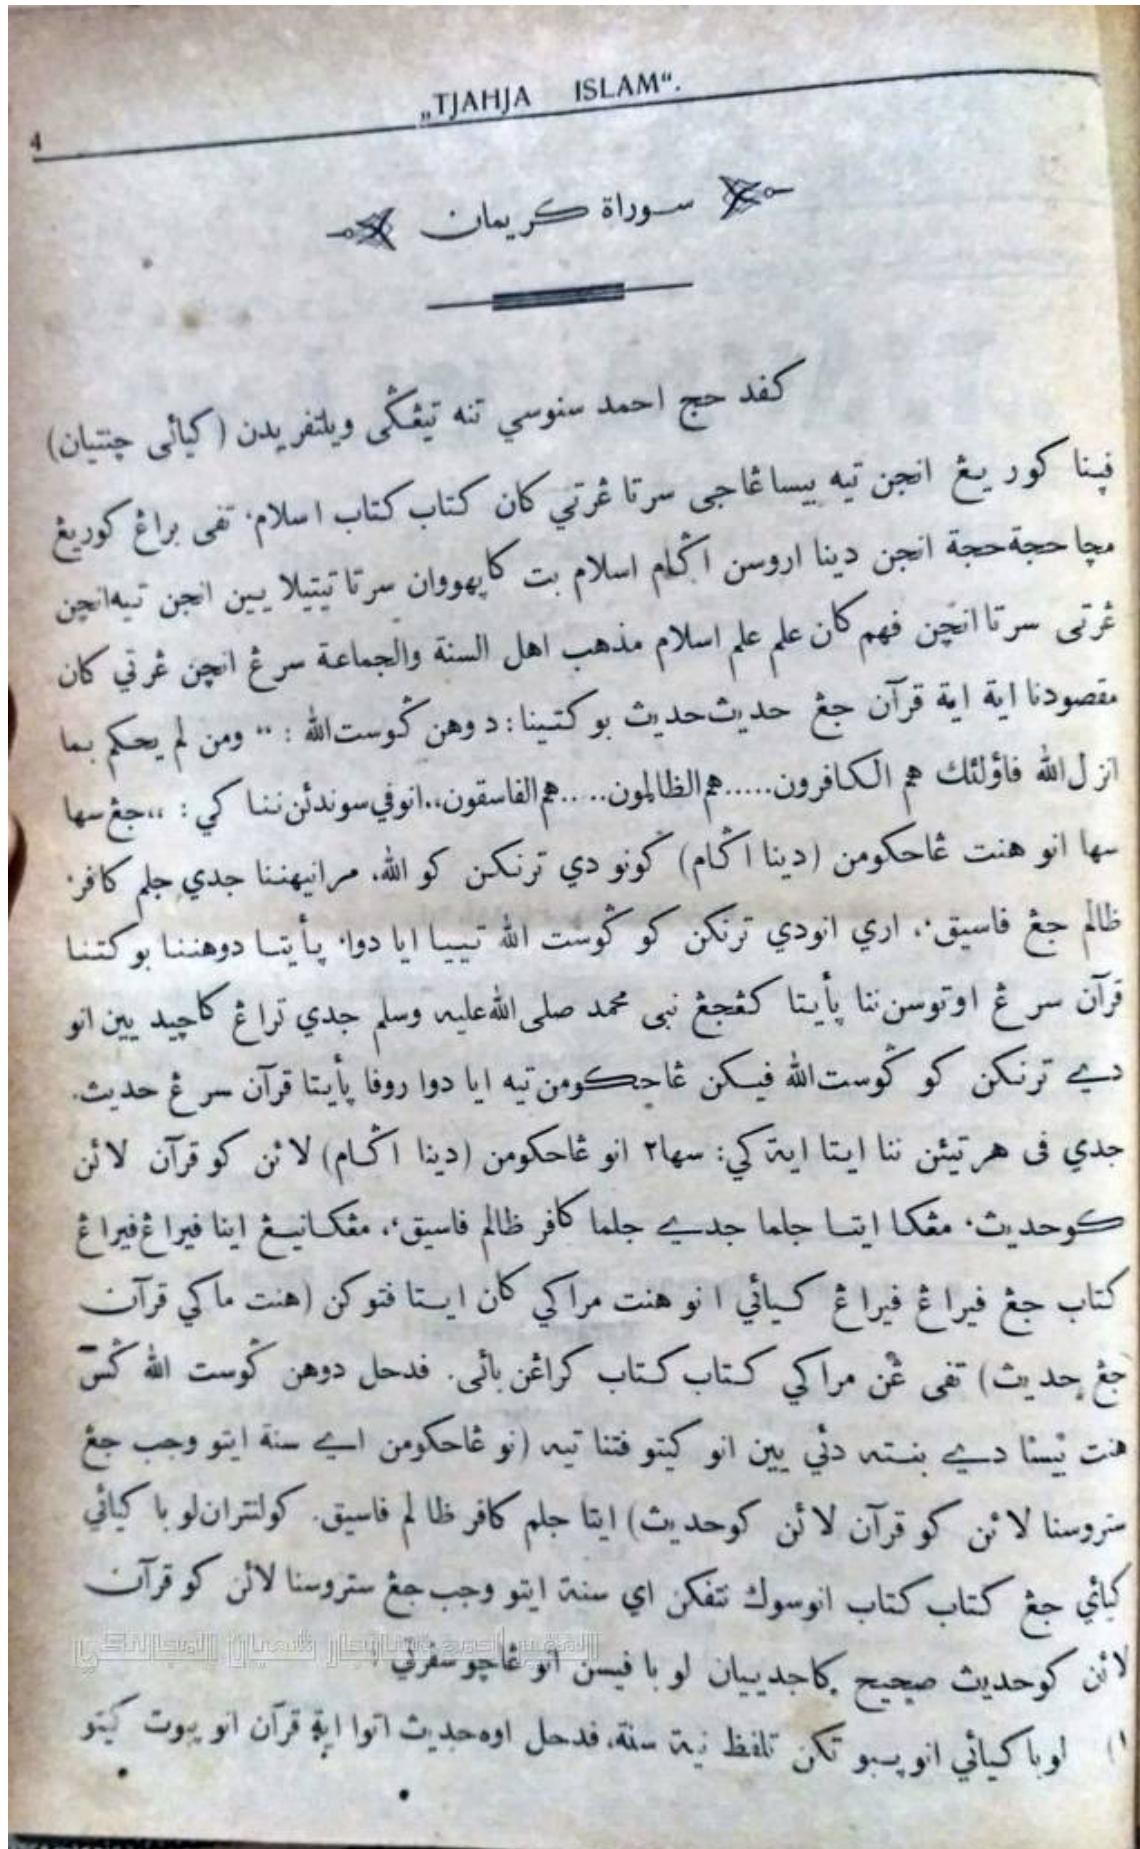 4
„TJAHJA ISLAM“.
سوراة كريمان
كفد حج احمد سنوسي تنه تيڠݢى ويلتفريدن (كيائى چنتيان)
فينا كوريڠ انجن تيه بيسا ڠاجى سرتا ڠرتي كان كتاب كتاب اسلام، تفى براڠ كوريڠ
مچا حجة حجة انجن دينا اروسن اݢام اسلام بت كايهووان سرتا تيتيلا يين انجن تيه انچن
ڠرتى سرتا انچن فهم كان علم علم اسلام مذهب اهل السنة والجماعة سرڠ انچن ڠرتي كان
مقصودنا اية اية قرآن جڠ حديث حديث بوكتينا: دوهن ݢوست الله : ,, ومن لم يحكم بما
انزل الله فاؤلئك هم الكافرون.....هم الظالمون.....هم الفاسقون,,.انو في سوندئن ننا كي : ,,جڠ سها
سها انو هنت ڠاحكومن (دينا اݢام) كونو دي ترنكن كو الله، مرانيهننا جدي جلم كافر،
ظالم جڠ فاسيق،، اري انودي ترنكن كو ݢوست الله تيييا ايا دوا، يأيتا دوهننا بوكتنا
قرآن سرڠ اوتوسن ننا يأيتا كڠجڠ نبى محمد صلى الله عليه وسلم جدي تراڠ كاچيد يين انو
دے ترنكن كو ݢوست الله فيكن ڠاحكومن تيه ايا دوا روفا يأيتا قرآن سرڠ حديث.
جدي فى هرتيئن ننا ايتا اية كي: سها٢ انو ڠاحكومن (دينا اݢام) لائن كو قرآن لائن
كوحديث، مڠكا ايتا جلما جدے جلما كافر ظالم فاسيق،، مڠكانيڠ اينا فيراڠ فيراڠ
كتاب جڠ فيراڠ فيراڠ كيائي انو هنت مراكي كان ايتا فتوكن (هنت ماكي قرآن
جڠ حديث) تفى ڠن مراكي كتاب كتاب كراڠن بائى. فدحل دوهن ݢوست الله ݢس
هنت دے بنته دئي يين انو كيتو فتنا تيه (نو ڠاحكومن اے سنة ايتو وجب جڠ
ستروسنا لائن كو قرآن لائن كوحديث) ايتا جلم كافر ظالم فاسيق. كولنتران لوبا كيائي
كيائي جڠ كتاب كتاب انوسوك نتفكن اي سنة ايتو وجب جڠ ستروسنا لائن كو قرآن
لائن كوحديث صحيح كاجدييان لوبا فيسن انو ڠاچو سفرتي :
١) لوبا كيائي انويبو تكن تلفظ نية سنة، فدحل اوه حديث اتوا اية قرآن انو يبوت كيتو